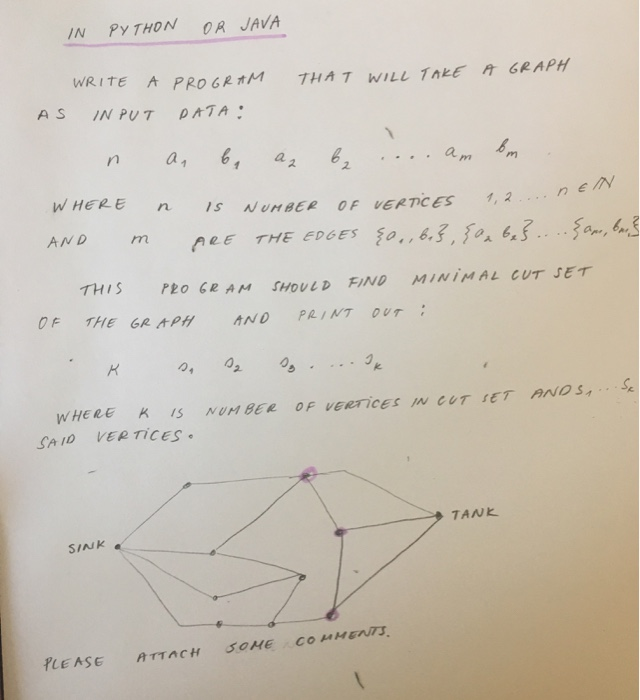 IN PYTHON OR JAVA
WRITE A PROGRAM THAT WILL TAKE A GRAPH
AS INPUT DATA:
n a₁ b₁ a₂ b₂ .... aₘ bₘ
WHERE n IS NUMBER OF VERTICES 1,2....n ∈ ℕ
AND m ARE THE EDGES {a₁,b₁},{a₂ b₂}....{aₘ,bₘ}
THIS PROGRAM SHOULD FIND MINIMAL CUT SET
OF THE GRAPH AND PRINT OUT:
K s₁ s₂ s₃ .... sₖ
WHERE K IS NUMBER OF VERTICES IN CUT SET AND S₁...Sₖ
SAID VERTICES.
TANK
SINK
PLEASE ATTACH SOME COMMENTS.